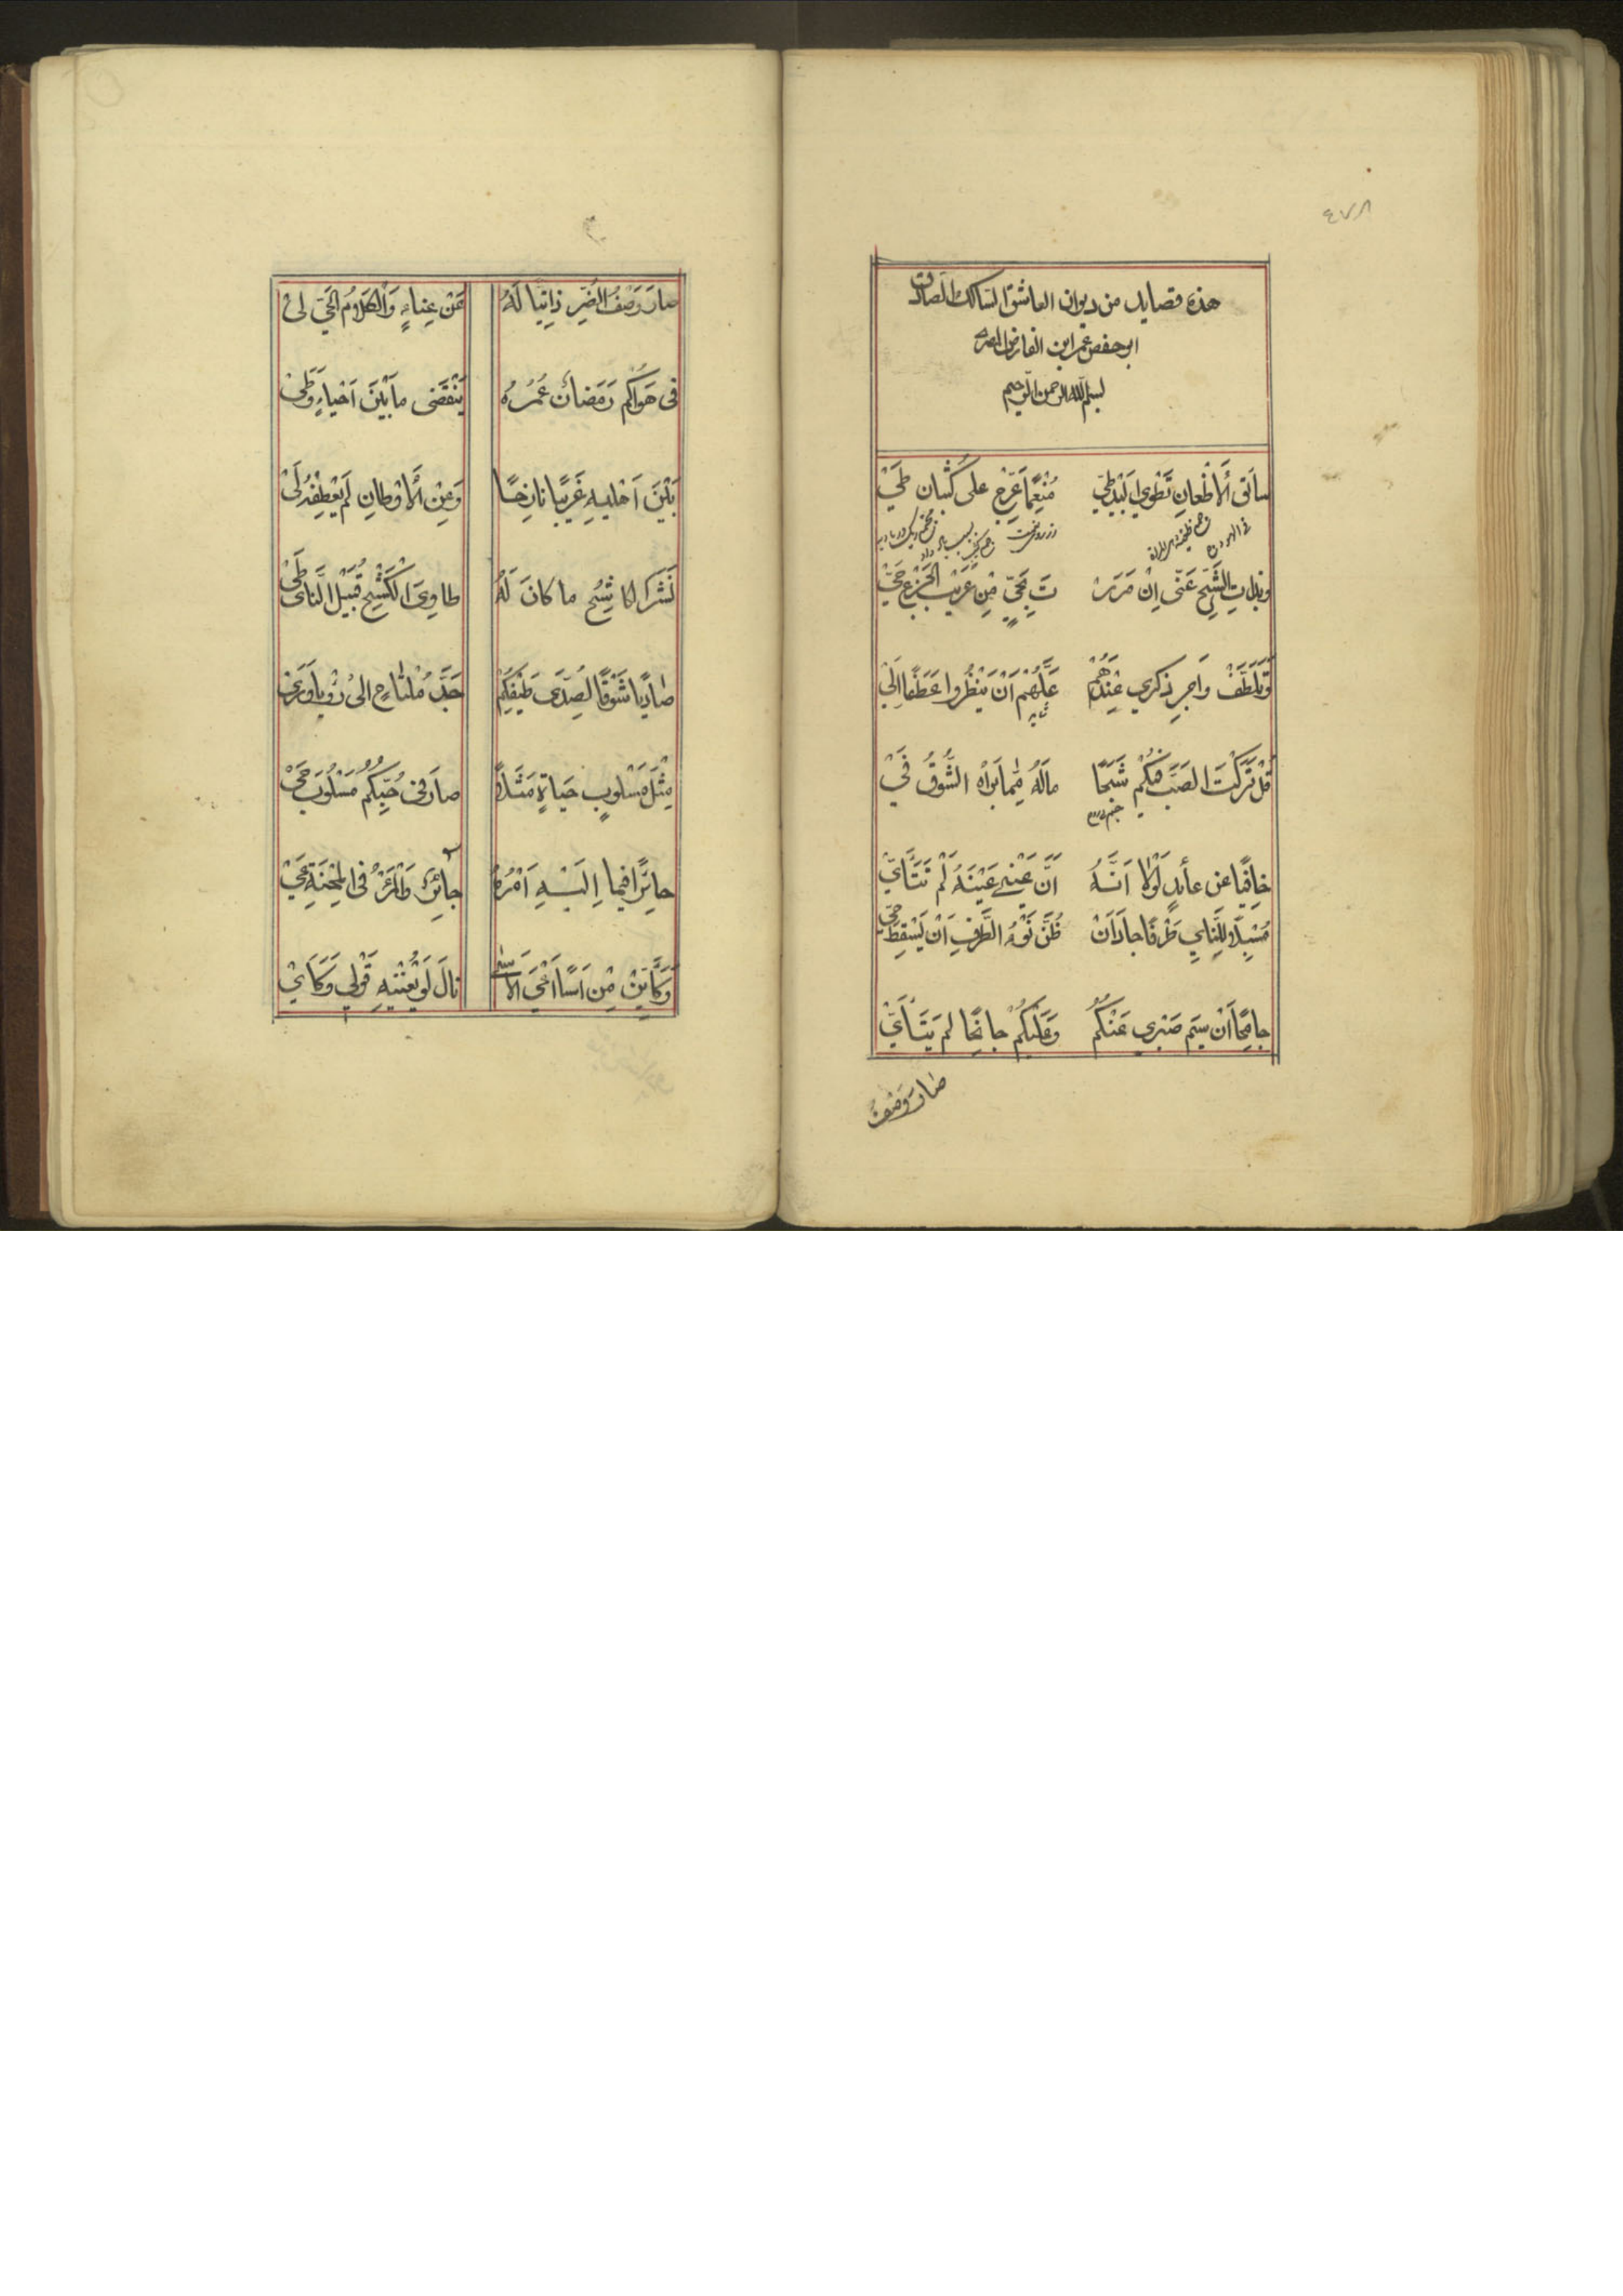 ٤٧٨
هذه قصايد من ديوان العاشق السالك الصادق
ابو حفص عمر ابن الفارض المصري
بسم الله الرحمن الرحيم
سائق الأظعان تطوي البيد طيّ منعما عرّج على كثبان طيّ
وبذات الشيح عنّي ان مررت بحيّ من عريب الجزع حيّ
وتلطّف واجر ذكري عندهم علّهم ان ينظروا عطفا اليّ
قل تركت الصبّ فيكم شبحا ماله ممّا براه الشّوق فيّ
خافيا عن عائد لولا انّه انّ عينى عينه لم تتأيّ
مسبلا للنّاي طرفا جاد ان ظنّ نوء الطّرف ان يسقط حيّ
جامحا ان سيم صبري عنكم وعليكم جانحا لم يتأيّ
صار وصف
صار وصف الضّر ذاتيّا له عن عناء والكلام الحيّ لى
فى هواكم رمضان عمره ينقضى ما بين احياء وطى
بين اهليه غريبا نازحا وعن الأوطان لم يعطفه لى
نشر الكاشح ما كان له طاوى الكشح قبيل النّاى طى
صاديا شوقا لصدّى طيفكم جدّ ملتاح الى رؤيا ورى
مثل مسلوب حياة مثلا صار فى حبّكم مسلوب حى
حائرا فيما اليه امره حائر والمرء فى المحنة عى
وكأيّن من اسا اعى الاسى نال لو يعنيه قولى وكأى